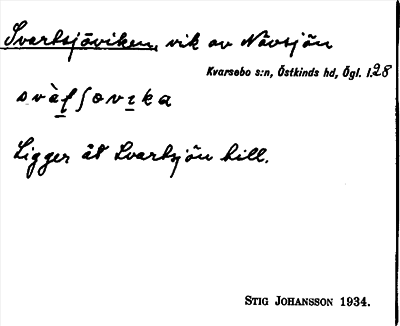 Svartsjöviken, vik av Nävsjön
Kvarsebo s:n, Östkinds hd, Ögl. l. 28
Ligger åt Svartsjön till.
STIG JOHANSSON 1934.